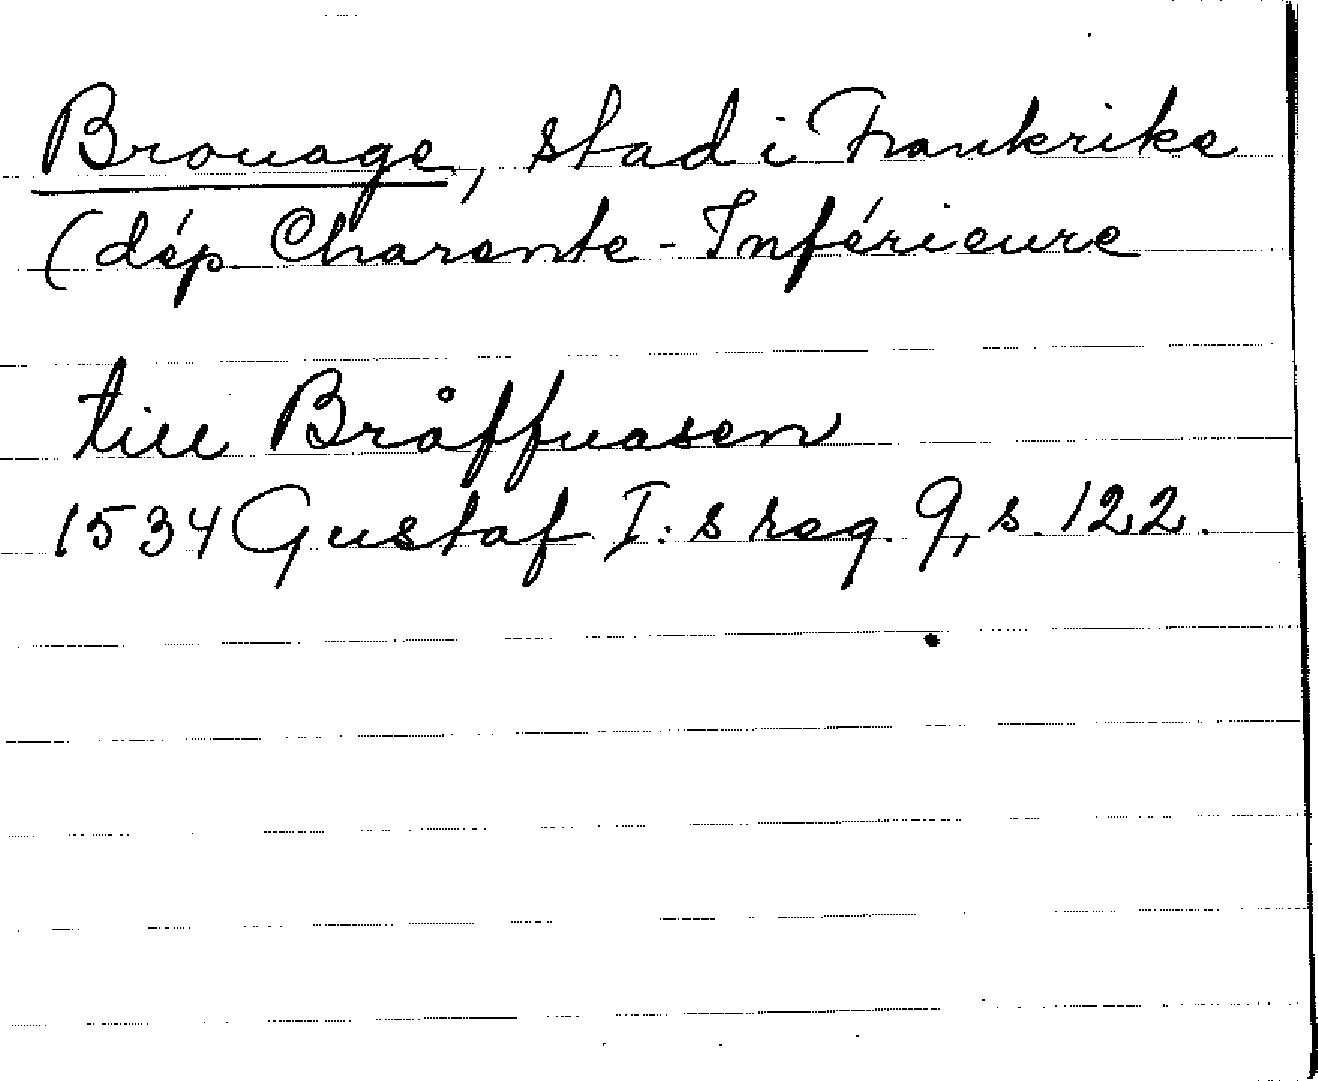 Brouage, stad i Frankrike
(dép. Charente-Inférieure
till Bråffuasen
1534 Gustaf I:s reg. 9, s. 122.